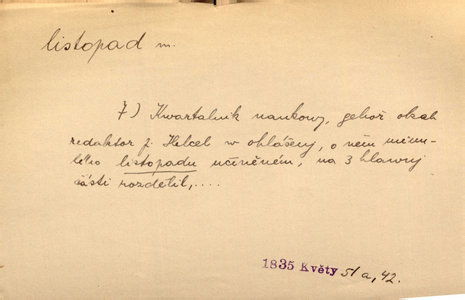 listopad m.
7) Kwartalnik naukowy, gehož obsah
redaktor p. Helcel w ohlášenj, o něm minu-
lého listopadu učiněném, na 3 hlawnj
části rozdělil,....
1835 Květy 51a,42.